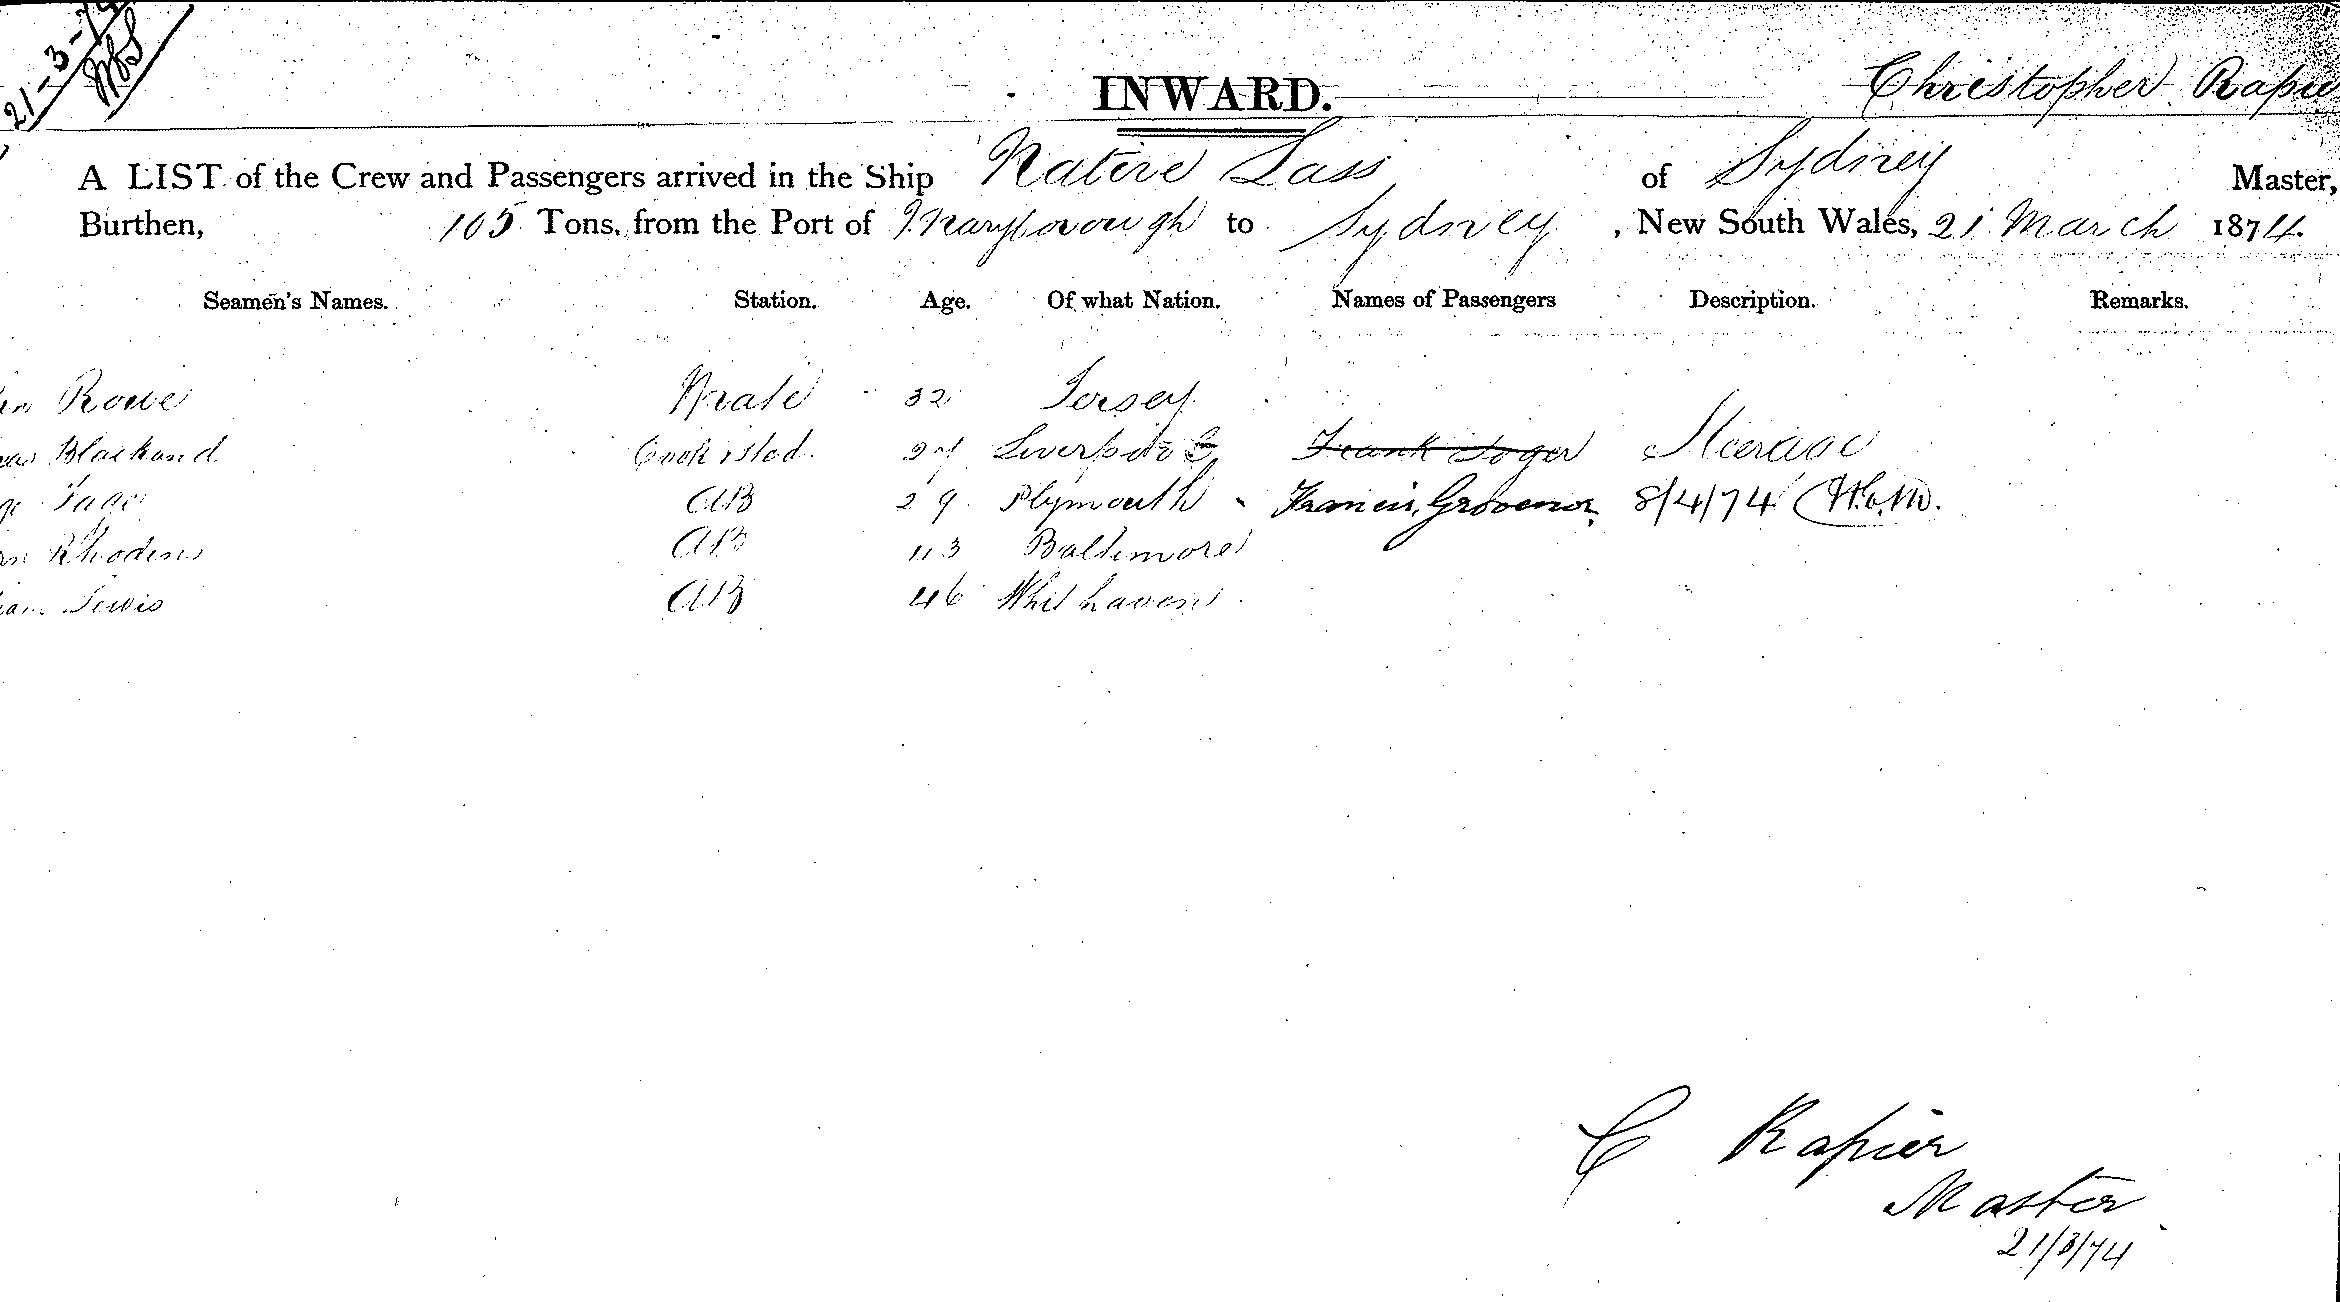 21-3-74
INWARD.
Christopher Rapier
A LIST of the Crew and Passengers arrived in the Ship Native Lass of Sydney Master,
Burthen, 105 Tons, from the Port of Maryborough to Sydney, New South Wales, 21 March 1874.
Seamen's Names. Station. Age. Of what Nation. Names of Passengers Description. Remarks.
Rowe Mate 32 Jersey
Cook & Sted. 27 Liverpool Frank Steerage
AB 29 Plymouth Francis Grovenor 8/4/74
AB 43 Baltimore
Lewis AB 46 Whithaven
C Rapier
Master
21/3/74